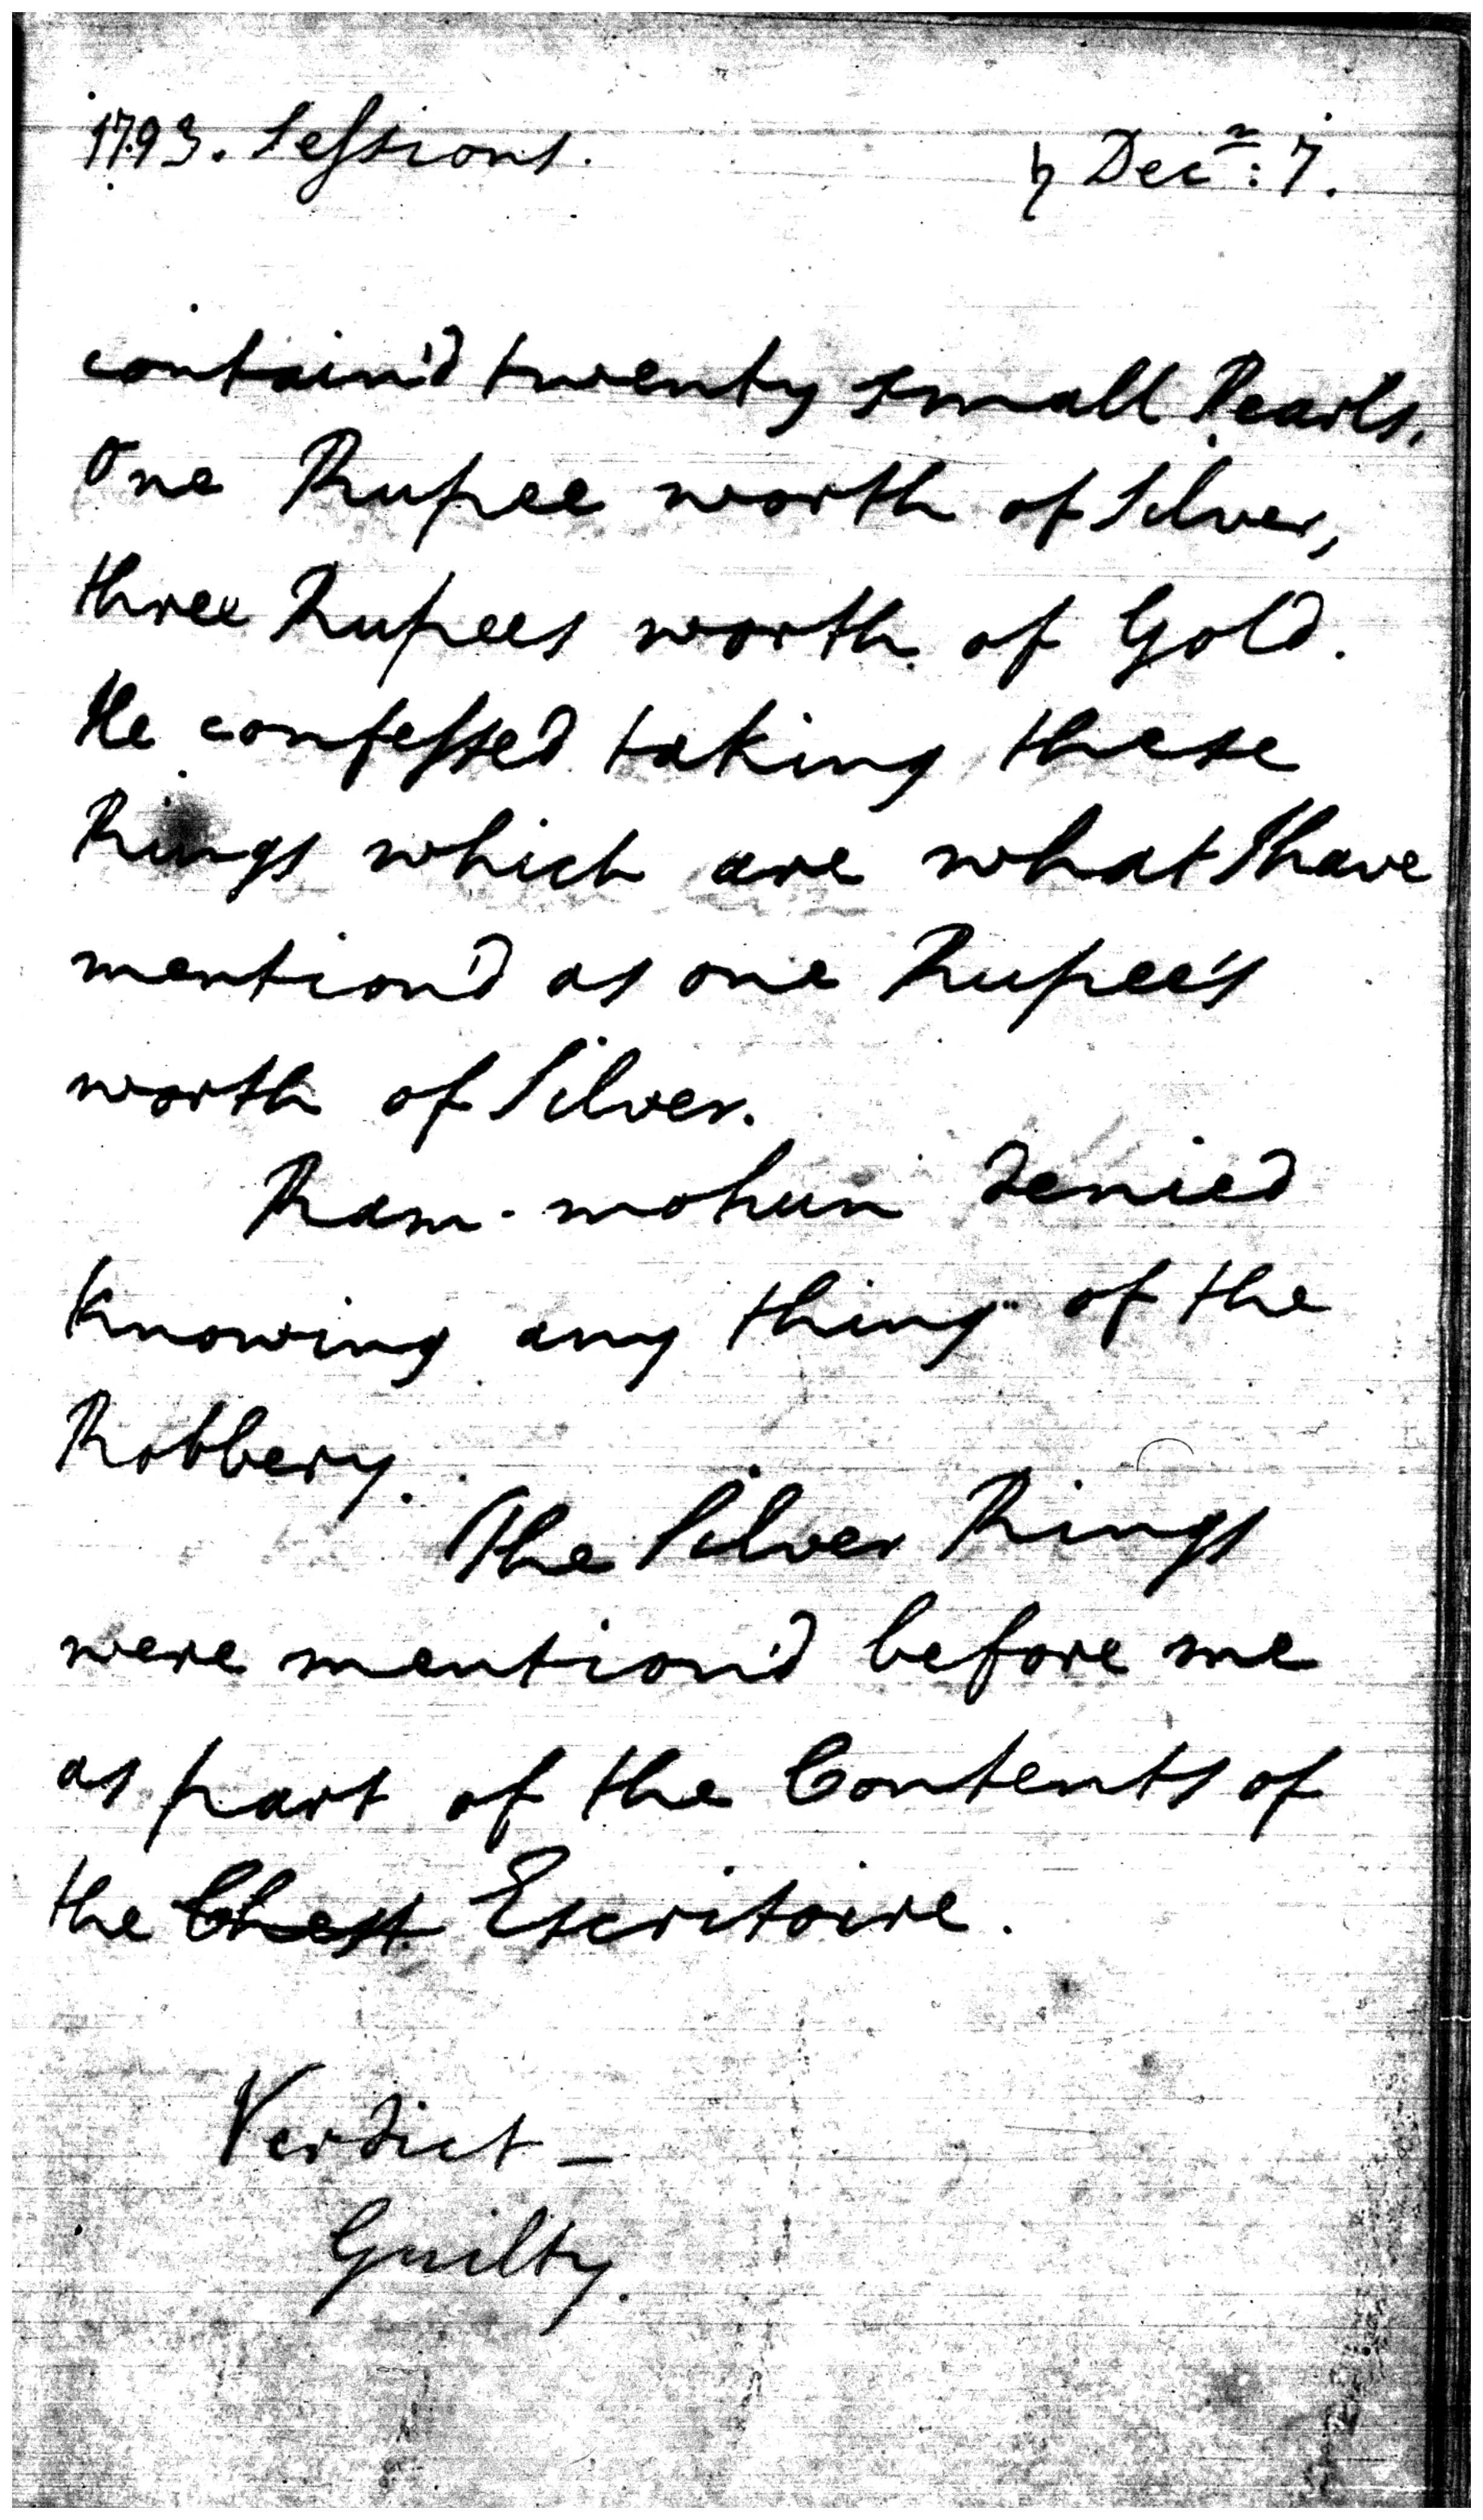 1793. Sessions. ♄ Decr: 7.
contain'd twenty small Pearls.
One Rupee worth of Silver,
three Rupees worth of Gold.
He confessed taking these
Rings which are what I have
mention'd as one Rupee's
worth of Silver.
Ram-mohun denied
knowing any thing of the
Robbery.
The Silver Rings
were mention'd before me
as part of the Contents of
the Chest Escritoire.
Verdict —
Guilty.